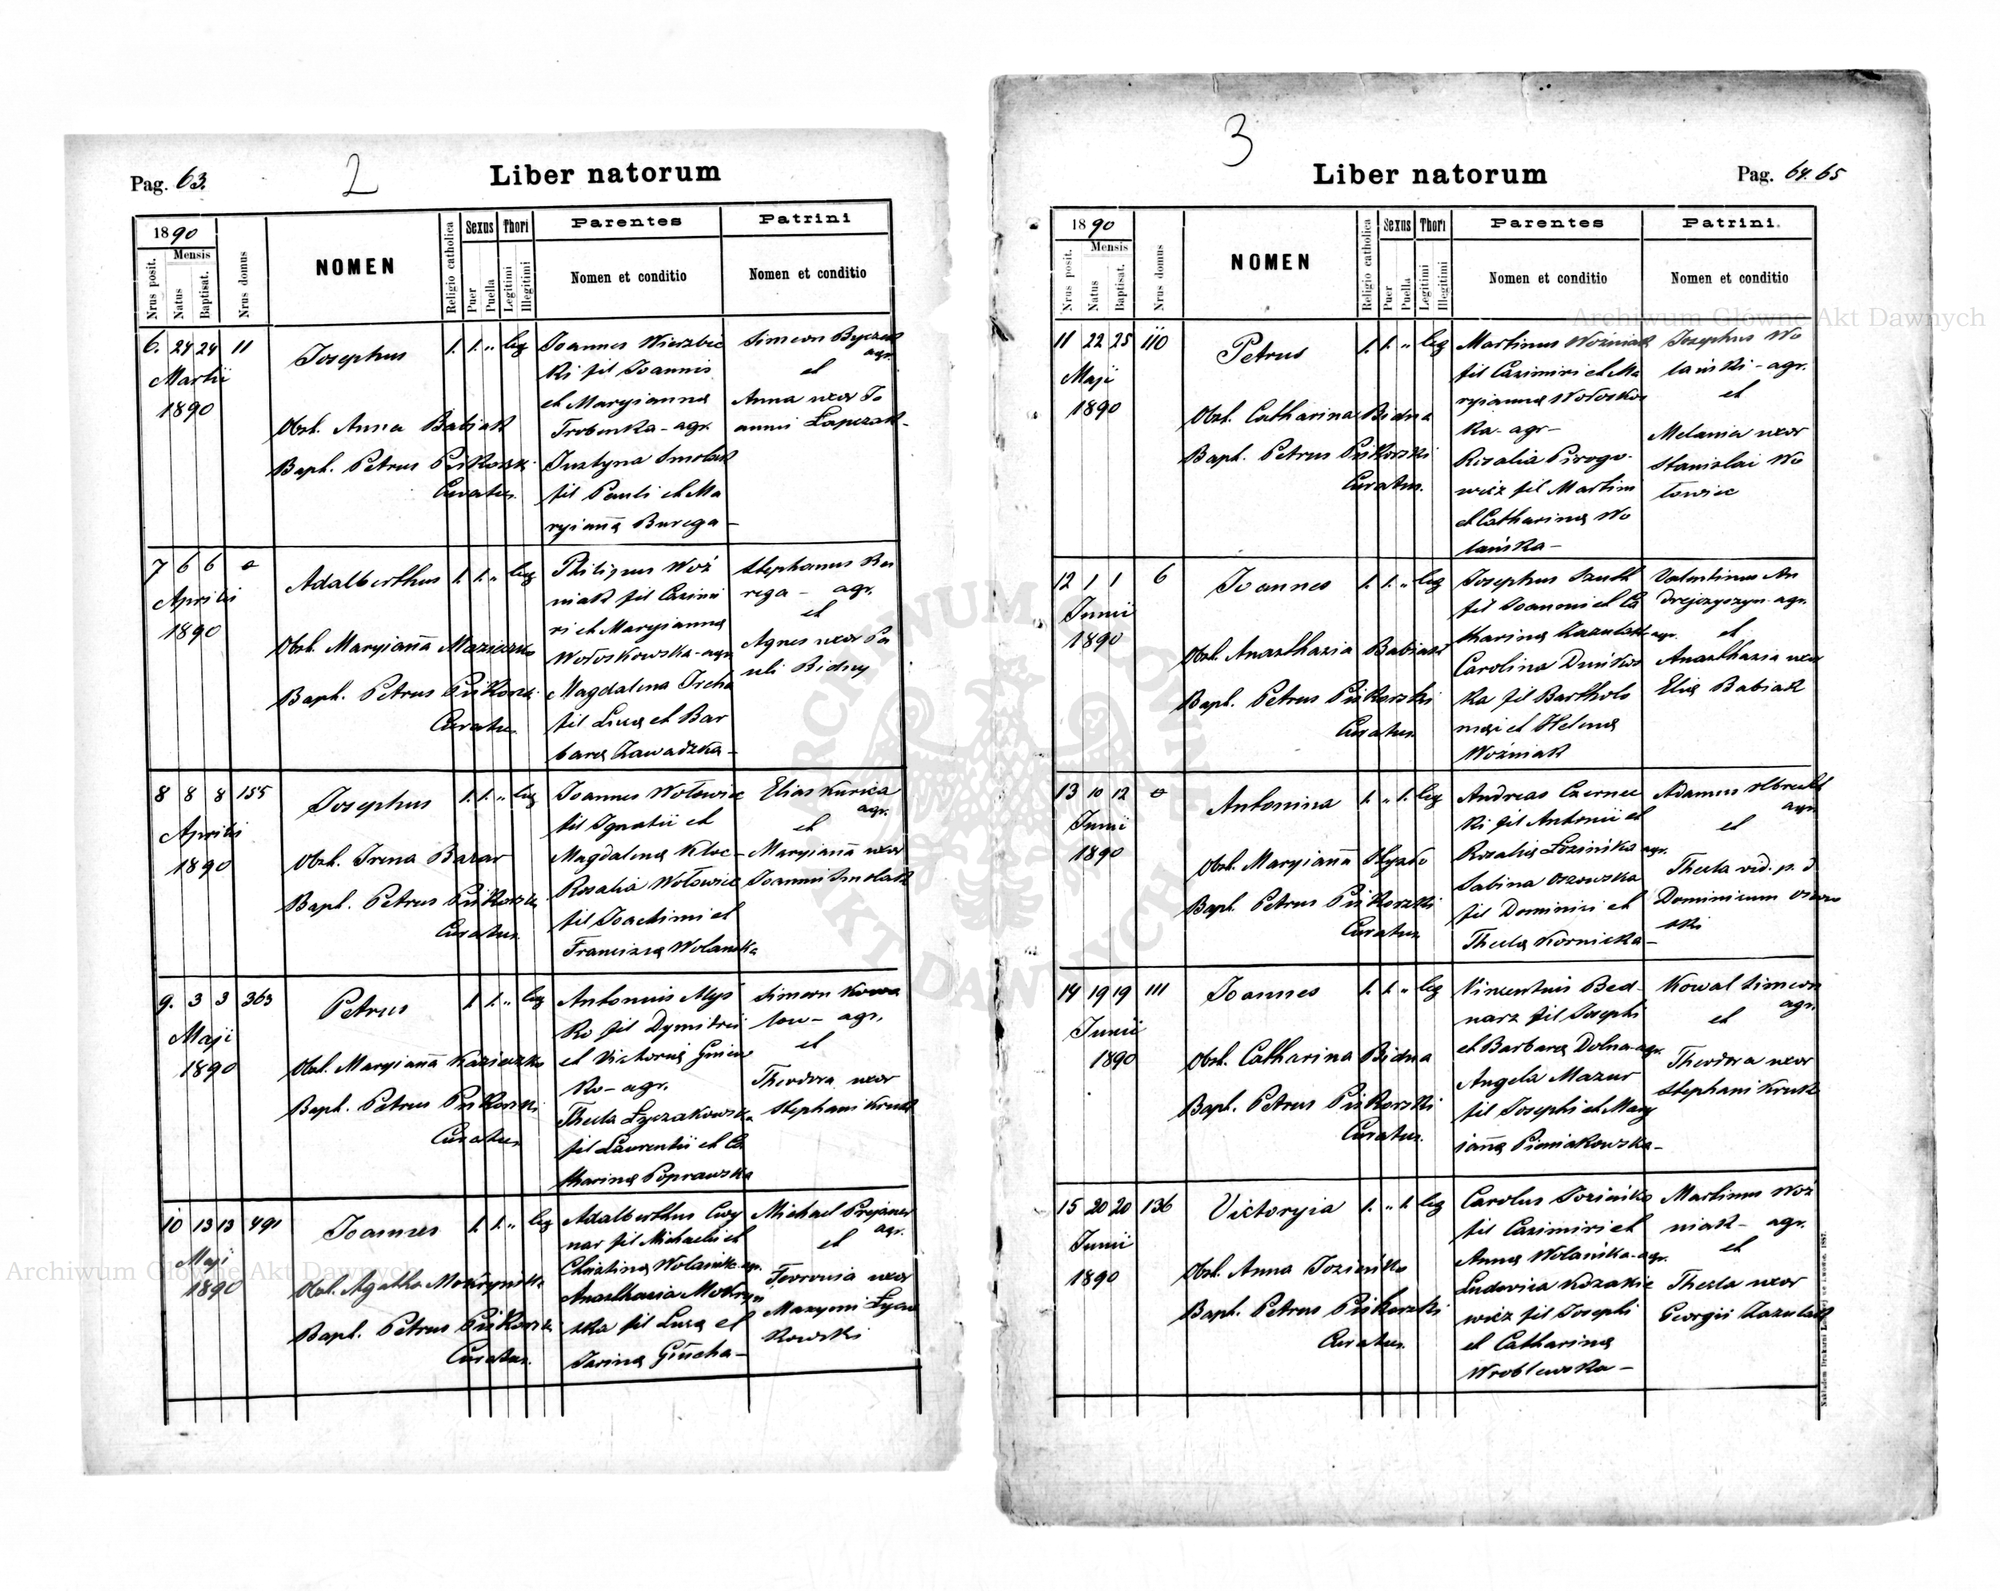 Pag. 63.
2
Liber natorum
1890
Mensis
Nrus posit.
Natus
Baptisat.
Nrus domus
NOMEN
Religio catholica
Sexus
Puer
Puella
Thori
Legitimi
Illegitimi
Parentes
Nomen et conditio
Patrini
Nomen et conditio
6. 24 24 11
Martii
1890
Josephus
1. 1. „ leg
Obst. Anna Babiak
Bapt. Petrus Piśkorski
Curatus.
Joannes Wierzbic
ki fil Joannis
et Maryianna
Trobenka - agr.
Justyna Smolak
fil Pauli et Ma
ryianą Burega -
Simeon Byczak
agr.
et
Anna uxor Jo
annis Łapczak -
7 6 6
Aprilis
1890
Adalberthus
1. 1. „ leg
Obst. Maryianna
Bapt. Petrus Piśkorski
Curatus.
Philipus Woź
niak fil Cazimi
ri et Maryianna
Wołoskowska - agr
Magdalena Ircha
fil Luca et Bar
bara Zawadzka -
Stephanus Bu
rega - agr.
et
Agnes uxor Pa
uli Bidny
8 8 8 155
Aprilis
1890
Josephus
1. 1. „ leg
Obst. Irena Bazar
Bapt. Petrus Piśkorski
Curatus.
Joannes Wołowiec
fil Ignatii et
Magdalena Kloc -
Rosalia Wołowiec
fil Joachimi et
Franciszą Wolanska
Elias Kurica
agr.
et
Maryianna uxor
Joanni Smolak
9. 3 3 363
Maji
1890
Petrus
1 1. „ leg
Obst. Maryianna Kazieczko
Bapt. Petrus Piśkorski
Curatus.
Antonius Mys
ko fil Dymitrii
et Victorią Gniew
ko - agr.
Thecla Łyczakowska
fil Laurentii et Ca
tharina Poprawska
Simeon Kowa
low - agr.
et
Theodora uxor
Stephani Kruk
10 13 13 491
Maji
1890
Joannes
1. 1. „ leg
Obst. Agatha Mokrynska
Bapt. Petrus Piśkorski
Curatus.
Adalberthus Cwy
nar fil Michaelis et
Christina Wolanska - agr.
Anasthasia Mokryn
ska fil Luca et
Jarina Głucha -
Michael Prejzner
agr.
et
Fevronia uxor
Maxymi Łycza
kowski
3
Liber natorum
Pag. 64. 65
1890
Mensis
Nrus posit.
Natus
Baptisat.
Nrus domus
NOMEN
Religio catholica
Sexus
Puer
Puella
Thori
Legitimi
Illegitimi
Parentes
Nomen et conditio
Patrini.
Nomen et conditio
11 22 25 110
Maji
1890
Petrus
1. 1. „ leg
Obst. Catharina Bidna
Bapt. Petrus Piśkorski
Curatus.
Martinus Woźniak
fil Cazimiri et Ma
ryianna Wołoskow
ka - agr -
Rosalia Pirogo-
wicz fil Martini
et Catharina Wo
lańska -
Josephus Wo
lański - agr.
et
Melania uxor
Stanislai Wo
łowiec
12 1 1 6
Junii
1890
Joannes
1. 1. „ leg
Obst. Anasthasia Babiak
Bapt. Petrus Piśkorski
Curatus.
Josephus
fil Joannis et Ca
tharina Zazulak agr.
Carolina Dmikow
ka fil Bartholo
mei et Helena
Woźniak
Valentinus An
drejczyszyn - agr.
et
Anasthasia uxor
Elia Babiak
13 10 12
Junii
1890
Antonina
1. „ 1. leg
Obst. Maryianna
Bapt. Petrus Piśkorski
Curatus.
Andreas Czernec
ki fil Antonii et
Rosalia Łozińska agr.
Sabina Oszowska
fil Dominici et
Thecla Kornicka -
Adamus Olbrecht
agr
et
Thecla vid. p. d
Dominicum
ski
14 19 19 111
Junii
1890
Joannes
1. 1. „ leg
Obst. Catharina Bidna
Bapt. Petrus Piśkorski
Curatus.
Vincentius Bed-
narz fil Josephi
et Barbara Dolna - agr.
Angela Mazur
fil Josephi et Mary
ianna Pieniakowska -
Kowal Simeon
agr.
et
Theodora uxor
Stephani Kruk
15 20 20 136
Junii
1890
Victoryia
1. „ 1. leg
Obst. Anna Jozienko
Bapt. Petrus Piśkorski
Curatus.
Carolus Jozieńko
fil Cazimiri et
Anna Wolańska - agr.
Ludovica Kozakie
wicz fil Josephi
et Catharina
Wroblewska -
Martinus Woź
niak - agr.
et
Thecla uxor
Georgii Zazulak
Archiwum Główne Akt Dawnych
Archiwum Główne Akt Dawnych
ARCHIWUM GŁÓWNE AKT DAWNYCH